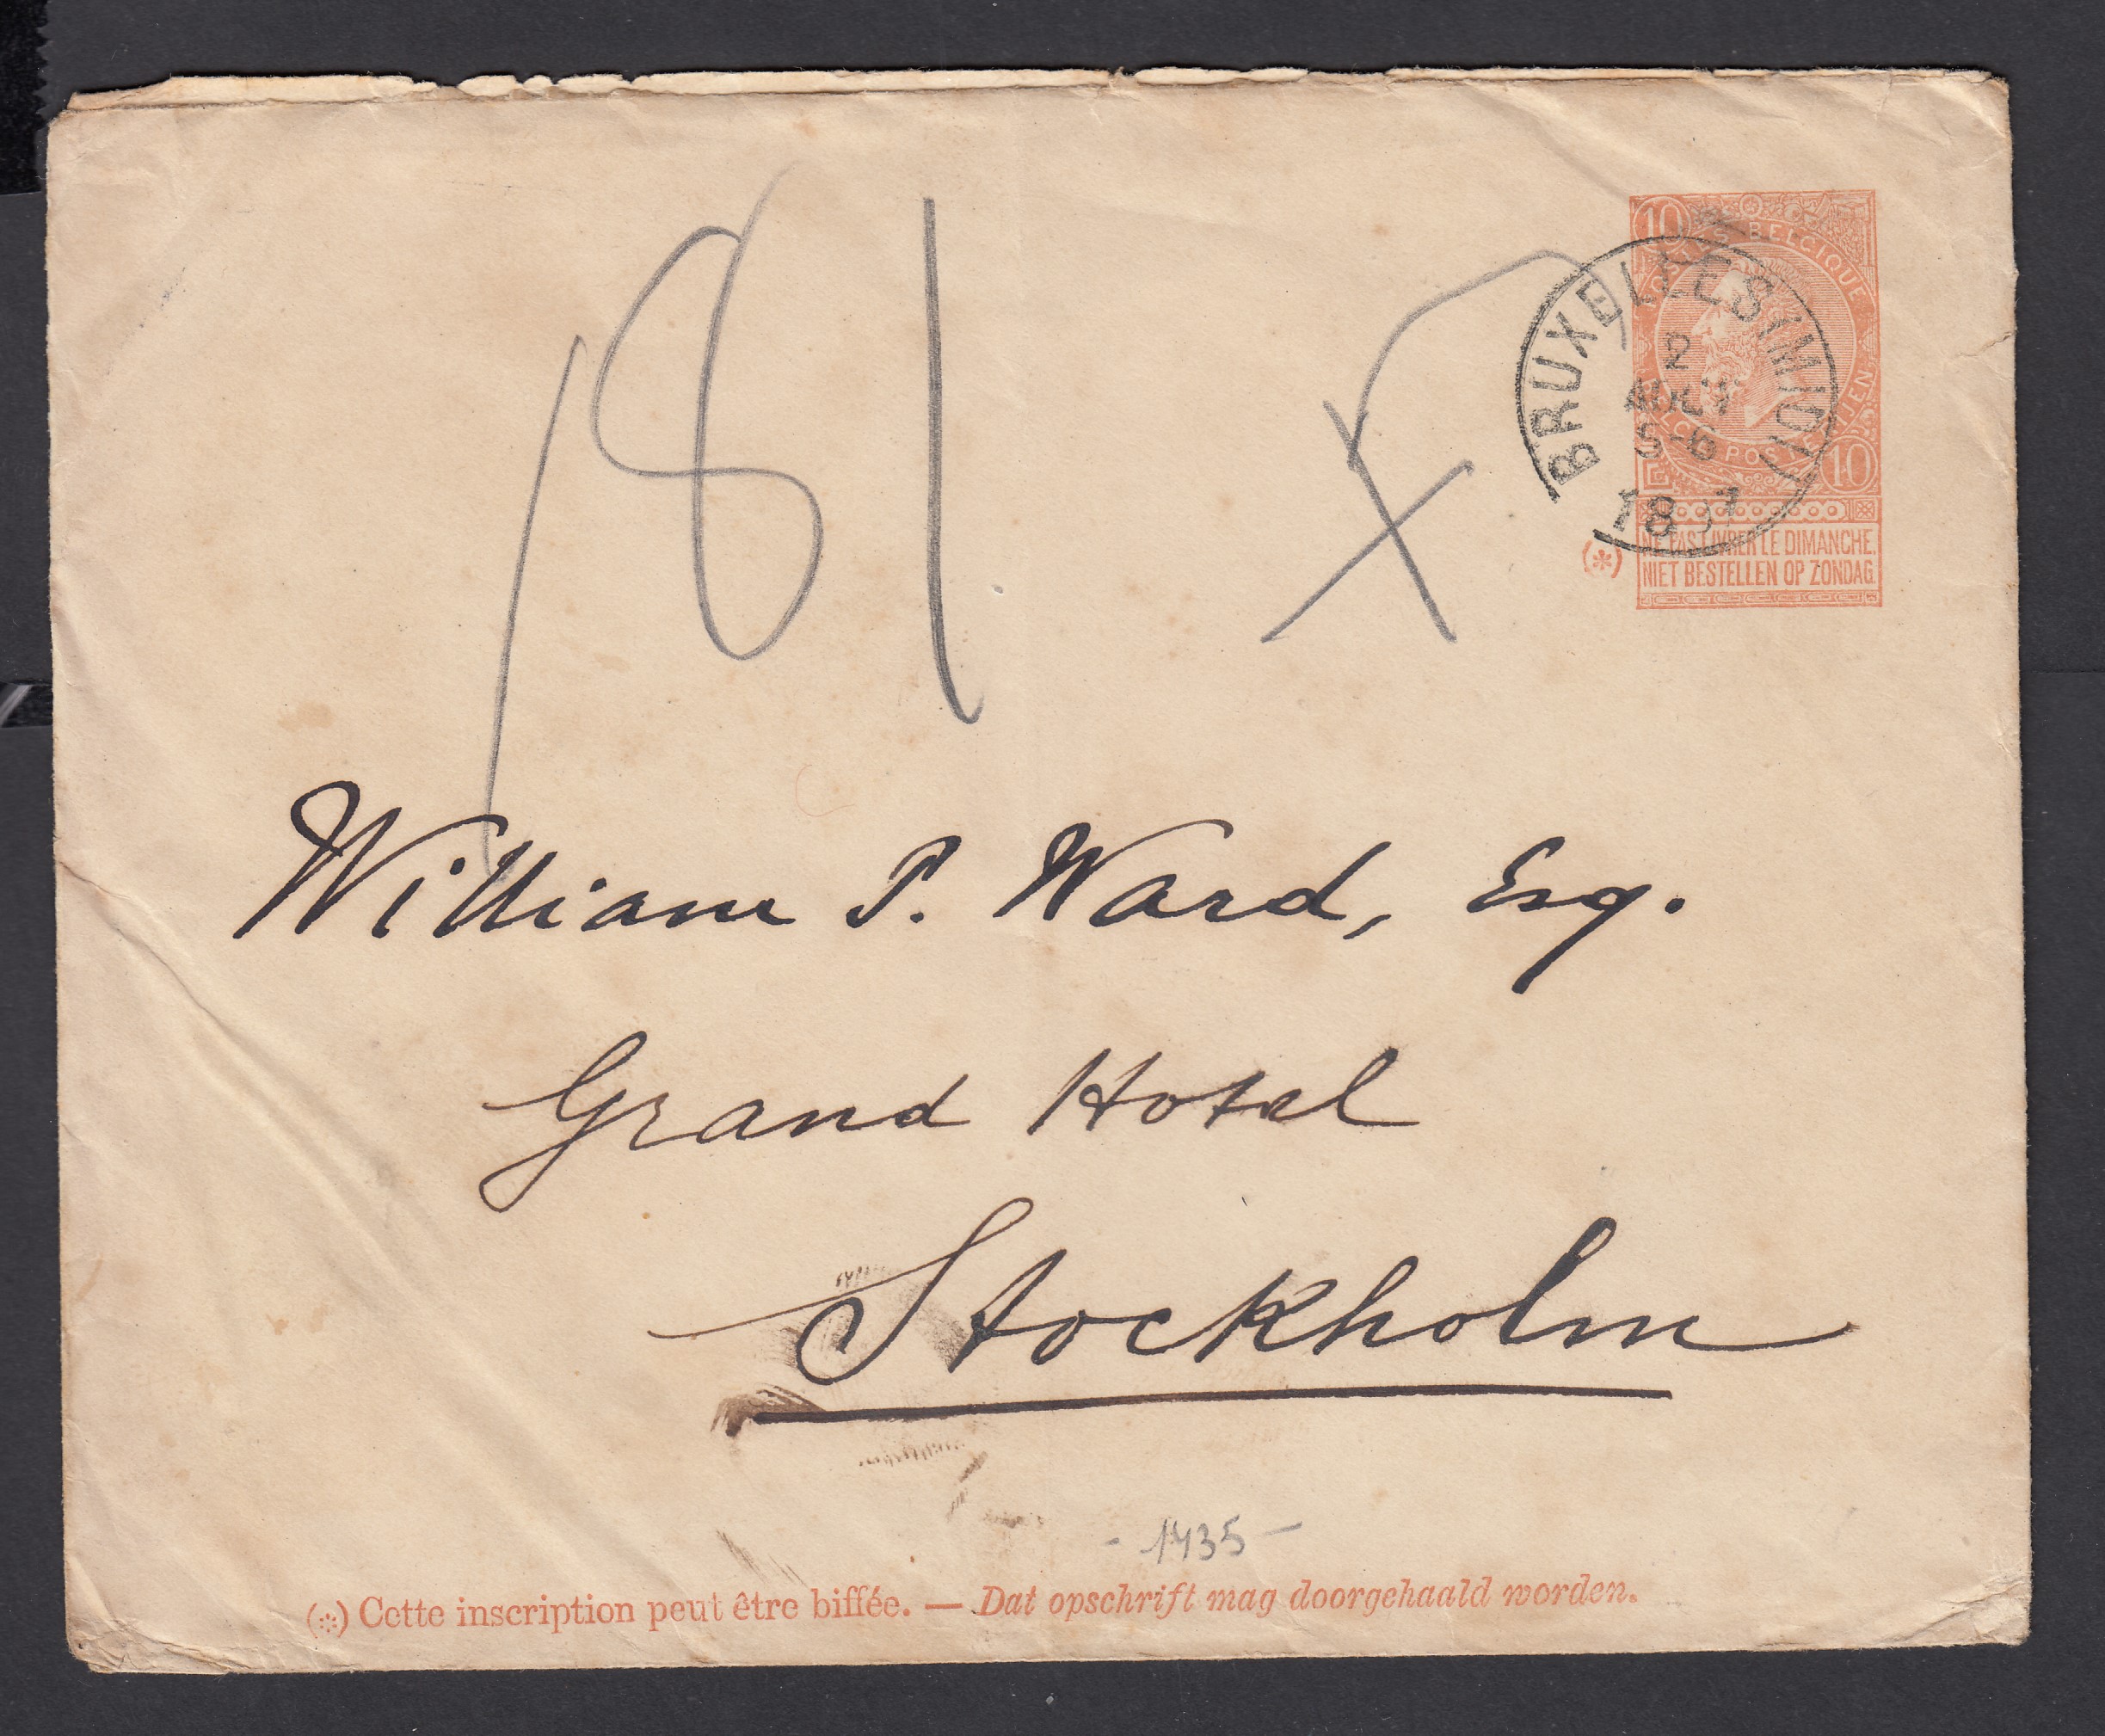 181
10
POSTES BELGIQUE
BRUXELLES (MIDI)
2
AOUT
5-6
10
(*)
NE PAS LIVRER LE DIMANCHE.
NIET BESTELLEN OP ZONDAG.
William P. Ward, Esq.
Grand Hotel
Stockholm
- 1435 -
(*) Cette inscription peut être biffée. — Dat opschrift mag doorgehaald worden.